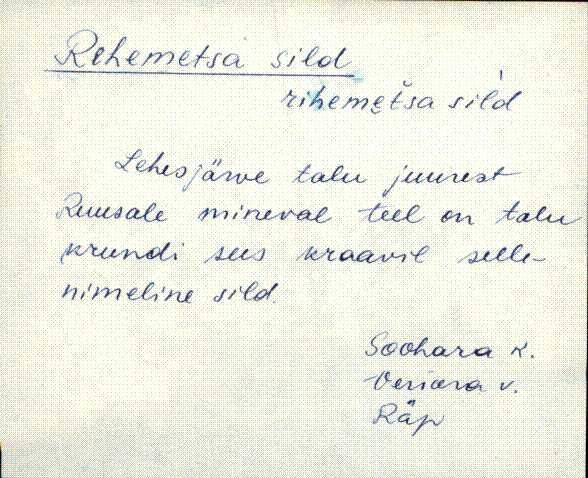 Rehemetsa sild
rihemetša sil'd
Lehesjärve talu juurest
Ruusale mineval teel on talu
krundi sees kraavil selle-
nimeline sild.
Soohara k.
Veriora v.
Räp